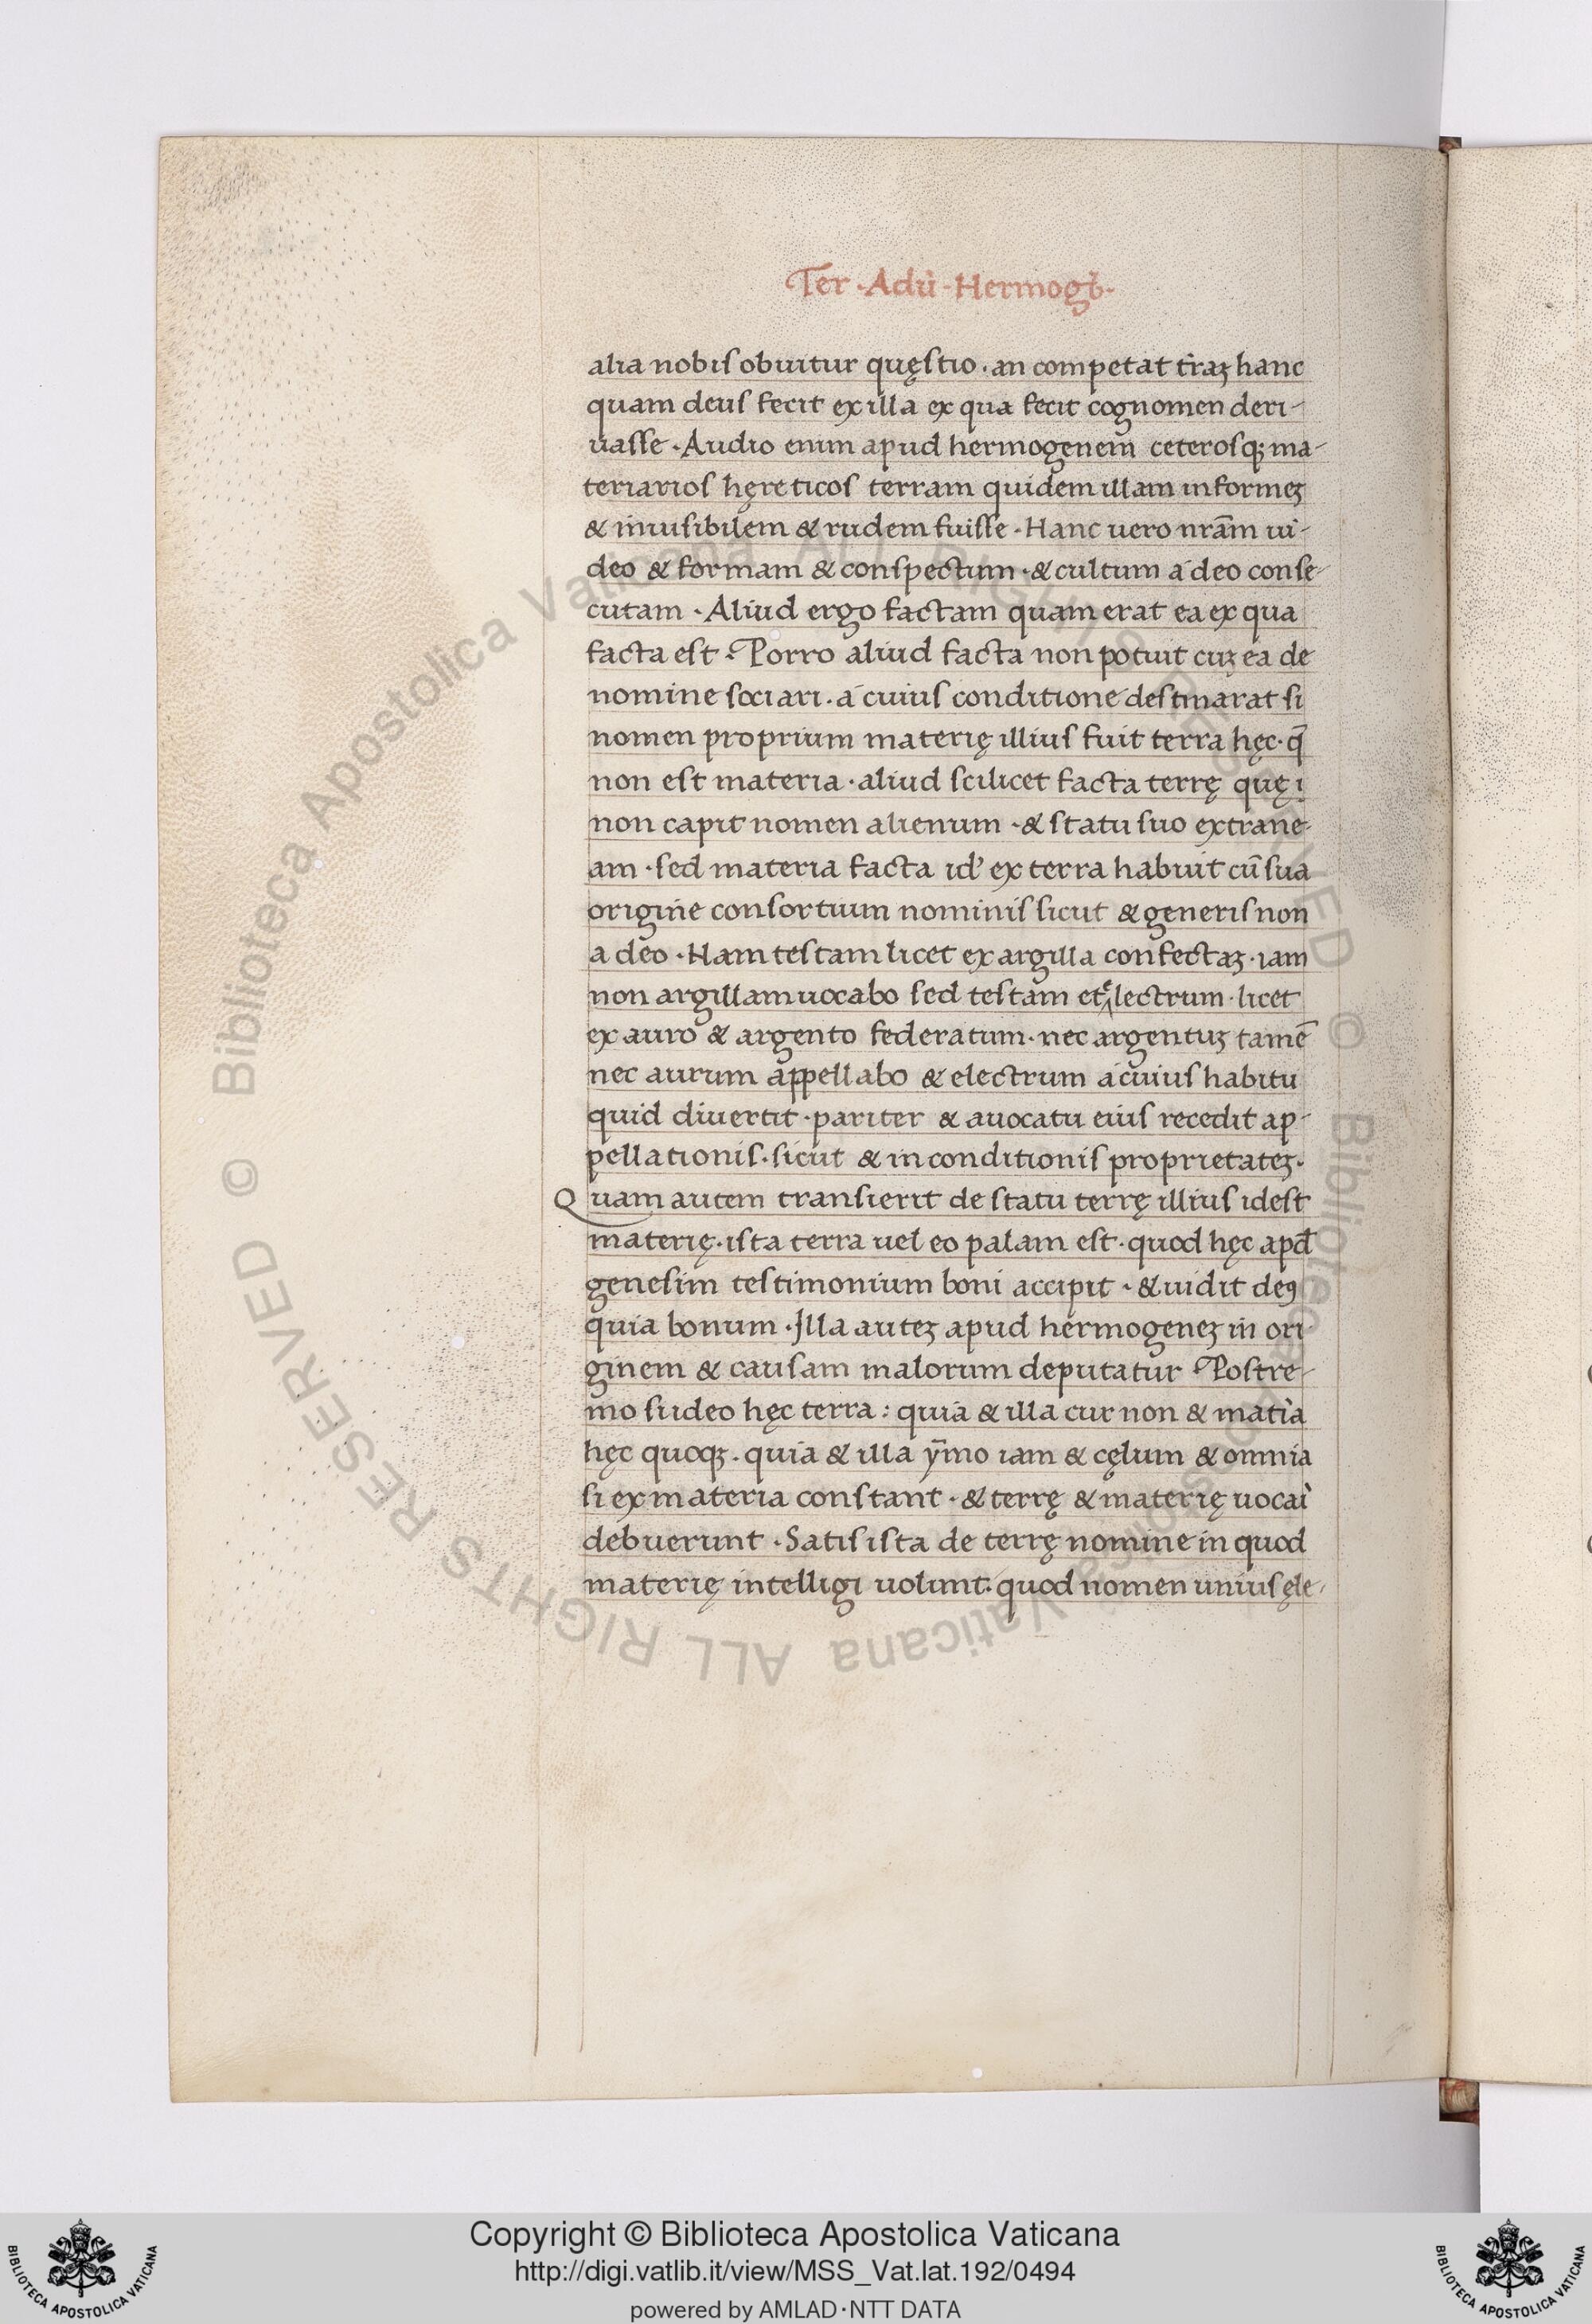 Ter · Adu̅ · Hermogē ·
alia nobis obuitur quęstio · an competat tr̃aꝫ hanc
quam deus fecit ex illa ex qua fecit cognomen deri-
uasse · Audio enim apud hermogenem ceterosqꝫ ma-
teriarios hęreticos terram quidem illam informeꝫ
& inuisibilem & rudem fuisse · Hanc uero nr̃am ui-
deo & formam & conspectum · & cultum á deo conse-
cutam · Aliud ergo factam quam erat ea ex qua
facta est · Porro aliud facta non potuit cuꝫ ea de
nomine sociari · á cuius conditione destinarat si
nomen proprium materię illius fuit terra hęc · q̃
non est materia · aliud scilicet facta terrę quę i
non capit nomen alienum · & statu suo extrane-
am · sed materia facta id' ex terra habuit cu̅ sua
origine consortium nominis sicut & generis non
a deo · Nam testam licet ex argilla confectaꝫ · iam
non argillam uocabo sed testam et electrum · licet
ex auro & argento federatum · nec argentuꝫ tame̅
nec aurum appellabo & electrum á cuius habitu
quid diuertit · pariter & auocatu eius recedit ap-
pellationis · sicut & in conditionis proprietateꝫ ·
Quam autem transierit de statu terrę illius idest
materię · ista terra uel eo palam est · quod hęc apđ
genesim testimonium boni accipit · & uidit deꝯ
quia bonum · Illa auteꝫ apud hermogeneꝫ in ori-
ginem & causam malorum deputatur · Postre-
mo si ideo hęc terra : quia & illa cur non & mat̃ia
hęc quoqꝫ · quia & illa y̅mo iam & cęlum & omnia
si ex materia constant · & terrę & materię uocar̃i
debuerunt · Satis ista de terrę nomine in quod
materię intelligi uolunt : quod nomen unius ęle-
© Biblioteca Apostolica Vaticana ALL RIGHTS RESERVED © Biblioteca Apostolica Vaticana ALL RIGHTS RESERVED
Copyright © Biblioteca Apostolica Vaticana
http://digi.vatlib.it/view/MSS_Vat.lat.192/0494
powered by AMLAD·NTT DATA
BIBLIOTECA APOSTOLICA VATICANA
BIBLIOTECA APOSTOLICA VATICANA